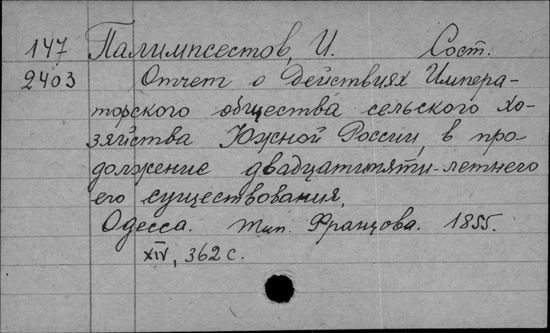 147 Палимпсестов, И. Сост.
2403 Отчет о действиях Импера-
торского общества сельского хо-
зяйства Южной России, в про-
должение двадцатипяти-летнего
его существования.
Одесса. Тип. Францова. 1855.
XIV, 362 с.